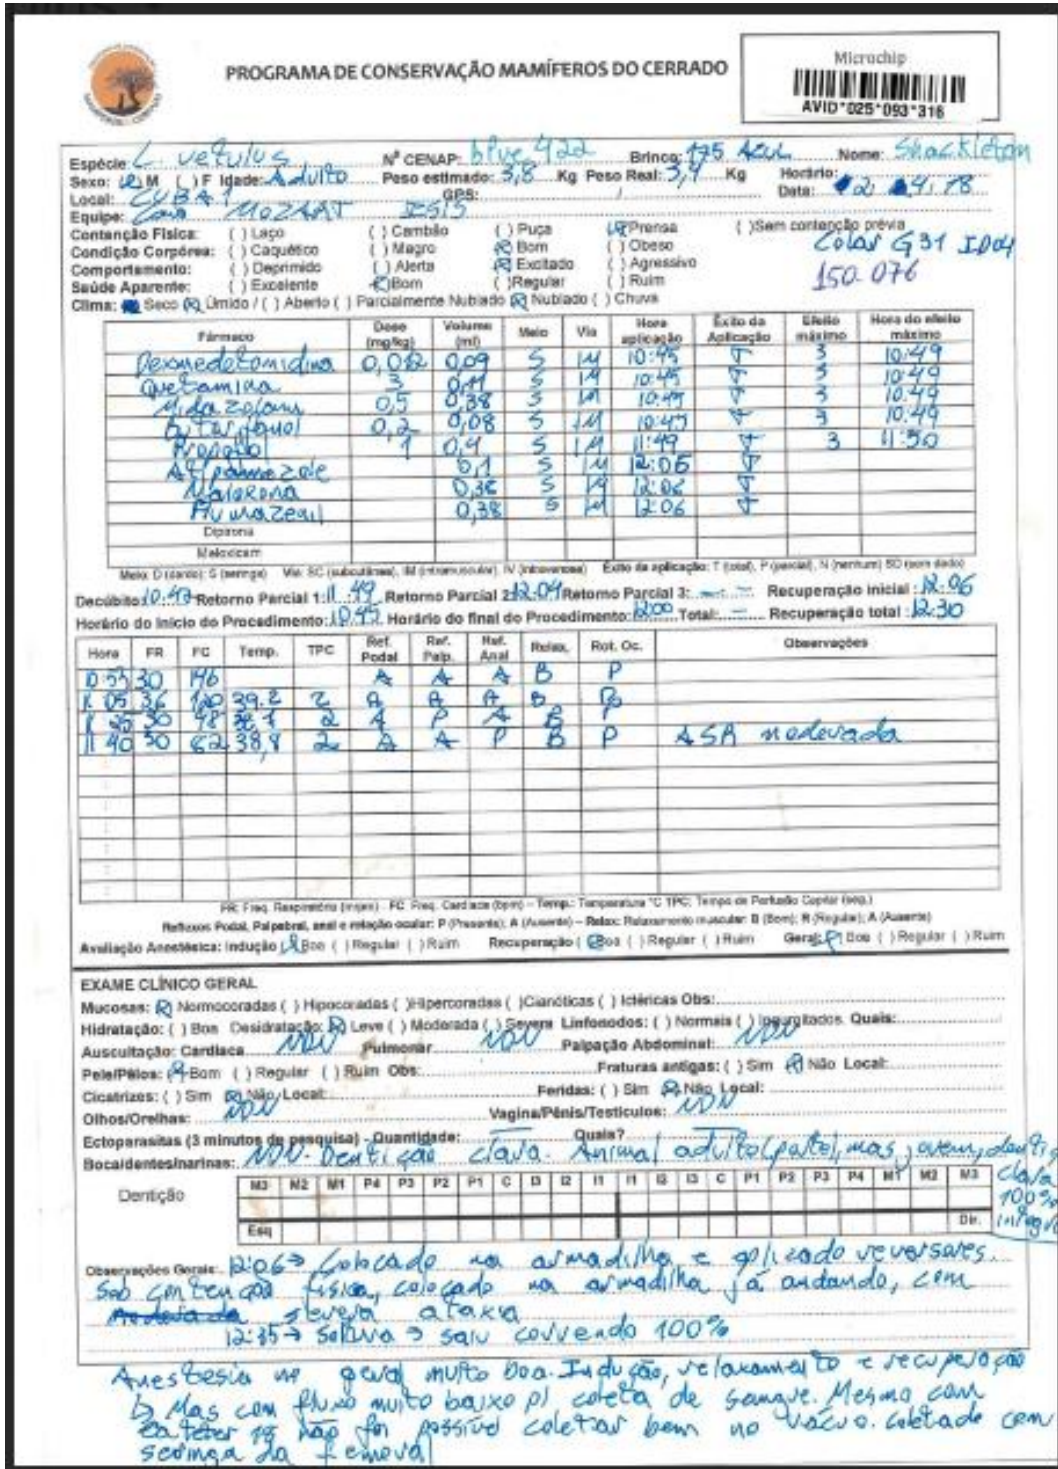 PROGRAMA DE CONSERVAÇÃO MAMÍFEROS DO CERRADO
Microchip
AVID*025*093*316
Espécie: L. vetulus Nº CENAP: blue 422 Brinco: 175 AZUL Nome: Shackleton
Sexo: M ( )F Idade: Adulto Peso estimado: 3,8 Kg Peso Real: 3,4 Kg Horário:
Local: GPS: Data:
Equipe: MOZART ISIS
Contenção Física: ( ) Laço ( ) Cambão ( ) Puça (x) Prensa ( )Sem contenção prévia
Condição Corpórea: ( ) Caquético ( ) Magro (x) Bom ( ) Obeso
Colar G31 ID04
Comportamento: ( ) Deprimido ( ) Alerta (x) Excitado ( ) Agressivo
150.076
Saúde Aparente: ( ) Excelente (x) Bom ( )Regular ( ) Ruim
Clima: Seco (x) Úmido / ( ) Aberto ( ) Parcialmente Nublado (x) Nublado ( ) Chuva
Fármaco Dose (mg/kg) Volume (ml) Meio Via Hora aplicação Êxito da Aplicação Efeito máximo Hora do efeito máximo
Dexmedetomidina 0,09 S IM 10:45 T 3 10:49
Quetamina 3 0,11 S IM 10:45 T 3 10:49
Midazolam 0,5 0,38 S IM 10:45 T 3 10:49
Butorfanol 0,2 0,08 S IM 10:45 T 3 10:49
Propofol 1 0,4 S IM 11:49 T 3 11:50
Atipamezole 0,1 S IM 12:06 T
Naloxona 0,38 S IM 12:06 T
Flumazenil 0,38 S IM 12:06 T
Dipirona
Meloxicam
Meio: D (dardo); S (seringa) Via: SC (subcutânea), IM (intramuscular), IV (intravenosa) Êxito da aplicação: T (total), P (parcial), N (nenhum) SD (sem dado)
Decúbito: 10:47 Retorno Parcial 1: 11:49 Retorno Parcial 2: 12:04 Retorno Parcial 3: Recuperação inicial: 12:06
Horário do Início do Procedimento: 10:45 Horário do final do Procedimento: 12:00 Total: – Recuperação total: 12:30
Hora FR FC Temp. TPC Ref. Podal Ref. Palp. Ref. Anal Relax. Rot. Oc. Observações
30 146 A A A B P
05 36 120 39.2 2 A A A B P
30 2 A P A B P
11 40 30 62 38,8 2 A A P B P ASR moderada
FR: Freq. Respiratória (mpm) - FC: Freq. Cardíaca (bpm) – Temp.: Temperatura °C TPC: Tempo de Perfusão Capilar (seg.)
Reflexos Podal, Palpebral, anal e rotação ocular: P (Presente); A (Ausente) – Relax: Relaxamento muscular: B (Bom); R (Regular); A (Ausente)
Avaliação Anestésica: Indução (x) Boa ( ) Regular ( ) Ruim Recuperação (x) Boa ( ) Regular ( ) Ruim Geral: (x) Boa ( ) Regular ( ) Ruim
EXAME CLÍNICO GERAL
Mucosas: (x) Normocoradas ( ) Hipocoradas ( )Hipercoradas ( )Cianóticas ( ) Ictéricas Obs:
Hidratação: ( ) Boa Desidratação: (x) Leve ( ) Moderada ( ) Severa Linfonodos: ( ) Normais ( ) Ingurgitados. Quais:
Auscultação: Cardíaca NDN Pulmonar NDN Palpação Abdominal: NDN
Pele/Pêlos: (x) Bom ( ) Regular ( ) Ruim Obs: Fraturas antigas: ( ) Sim (x) Não Local:
Cicatrizes: ( ) Sim (x) Não Local: Feridas: ( ) Sim (x) Não Local:
Olhos/Orelhas: NDN Vagina/Pênis/Testículos: NDN
Ectoparasitas (3 minutos de pesquisa) - Quantidade: — Quais? —
Boca/dentes/narinas: NDN. Dentição clara. Animal adulto (porte), mas jovem, dentição clara 100% íntegra
Dentição M3 M2 M1 P4 P3 P2 P1 C I3 I2 I1 I1 I2 I3 C P1 P2 P3 P4 M1 M2 M3
Esq Dir.
Observações Gerais: 12:06 → Colocado na armadilha e aplicado reversores.
Sob contenção física, colocado na armadilha já andando, com
severa ataxia
12:35 → Soltura → saiu correndo 100%
Anestesia no geral muito boa. Indução, relaxamento e recuperação
↳ Mas com fluxo muito baixo p/ coleta de sangue. Mesmo com
cateter não foi possível coletar bem no vácuo. Coletado com
seringa da femoral